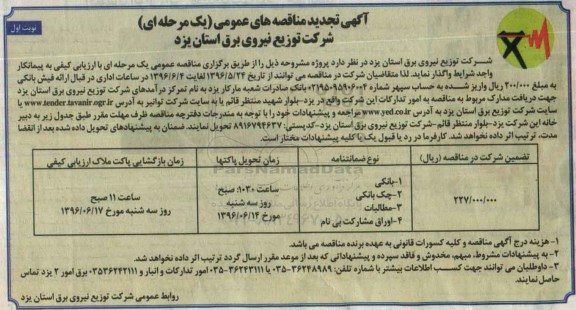 نوبت اول
آگهی تجدید مناقصه های عمومی (یک مرحله ای)
شرکت توزیع نیروی برق استان یزد
شرکت توزیع نیروی برق استان یزد در نظر دارد پروژه مشروحه ذیل را از طریق برگزاری مناقصه عمومی یک مرحله ای با ارزیابی کیفی به پیمانکار
واجد شرایط واگذار نماید. لذا متقاضیان شرکت در مناقصه می توانند از تاریخ ۱۳۹۶/۵/۲۴ لغایت ۱۳۹۶/۶/۴ در ساعات اداری در قبال ارائه فیش بانکی
به مبلغ ۲۰۰/۰۰۰ ریال واریز شده به حساب سپهر شماره بانک صادرات شعبه مارکار یزد به نام تمرکز درآمدهای شرکت توزیع نیروی برق استان یزد
جهت دریافت مدارک مربوط به مناقصه به امور تدارکات این شرکت واقع در یزد-بلوار شهید منتظر قائم یا به سایت شرکت توانیر به آدرس www.tender.tavanir.ogr.ir یا
سایت شرکت توزیع برق استان یزد به آدرس www.yed.co.ir مراجعه و پیشنهادات خود را با توجه به مندرجات دفترچه مناقصه ظرف مهلت مقرر طبق جدول زیر به دبیر
خانه این شرکت یزد-بلوار منتظر قائم-شرکت توزیع نیروی برق استان یزد-کدپستی: ۸۹۱۶۷۹۴۶۳۷ تحویل نمایند. ضمنان به پیشنهادهای تحویل داده شده بعد از انقضا
مدت، ترتیب اثر داده نخواهد شد. کارفرما در رد یا قبول یک یا کلیه پیشنهادات مختار است.
تضمین شرکت در مناقصه (ریال)
نوع ضمانتنامه
زمان تحویل پاکتها
زمان بازگشایی پاکت ملاک ارزیابی کیفی
۲۲۷/۰۰۰/۰۰۰
۱-بانکی
۲-چک بانکی
۳-مطالبات
۴-اوراق مشارکت بی نام
ساعت ۱۰:۳۰ صبح
روز سه شنبه
مورخ ۱۳۹۶/۰۶/۱۴
ساعت ۱۱ صبح
روز سه شنبه مورخ ۱۳۹۶/۰۶/۱۷
ParsNamadData
۱- هزینه درج آگهی مناقصه و کلیه کسورات قانونی به عهده برنده مناقصه می باشد.
۲- به پیشنهادات مشروط، مبهم، مخدوش و فاقد سپرده و پیشنهاداتی که بعد از موعد مقرر ارسال گردد ترتیب اثر داده نخواهد شد.
۳- داوطلبان می توانند جهت کسب اطلاعات بیشتر با شماره تلفن: ۳۶۲۴۸۹۸۹-۰۳۵ یا ۳۶۲۴۳۱۱۱-۰۳۵ امور تدارکات و انبار و ۰۳۵۳۶۲۴۲۱۱۱ برق امور ۲ یزد تماس
حاصل نمایند.
روابط عمومی شرکت توزیع نیروی برق استان یزد